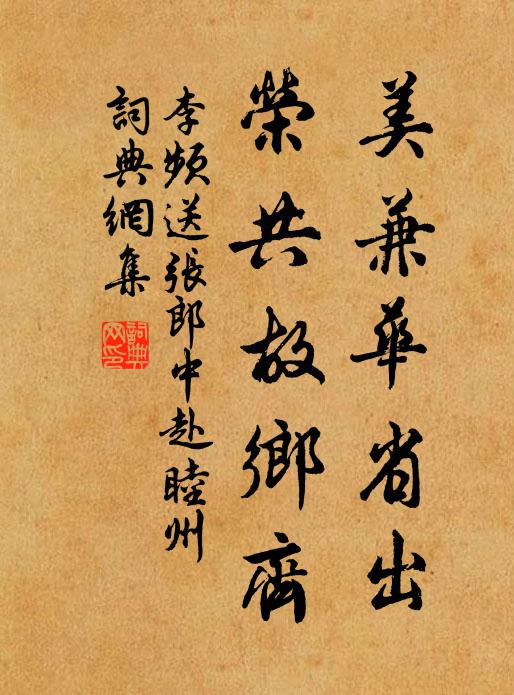 美兼華省出
榮共故鄉齊
李頻送張郎中赴睦州
詞典網集
詞典网印